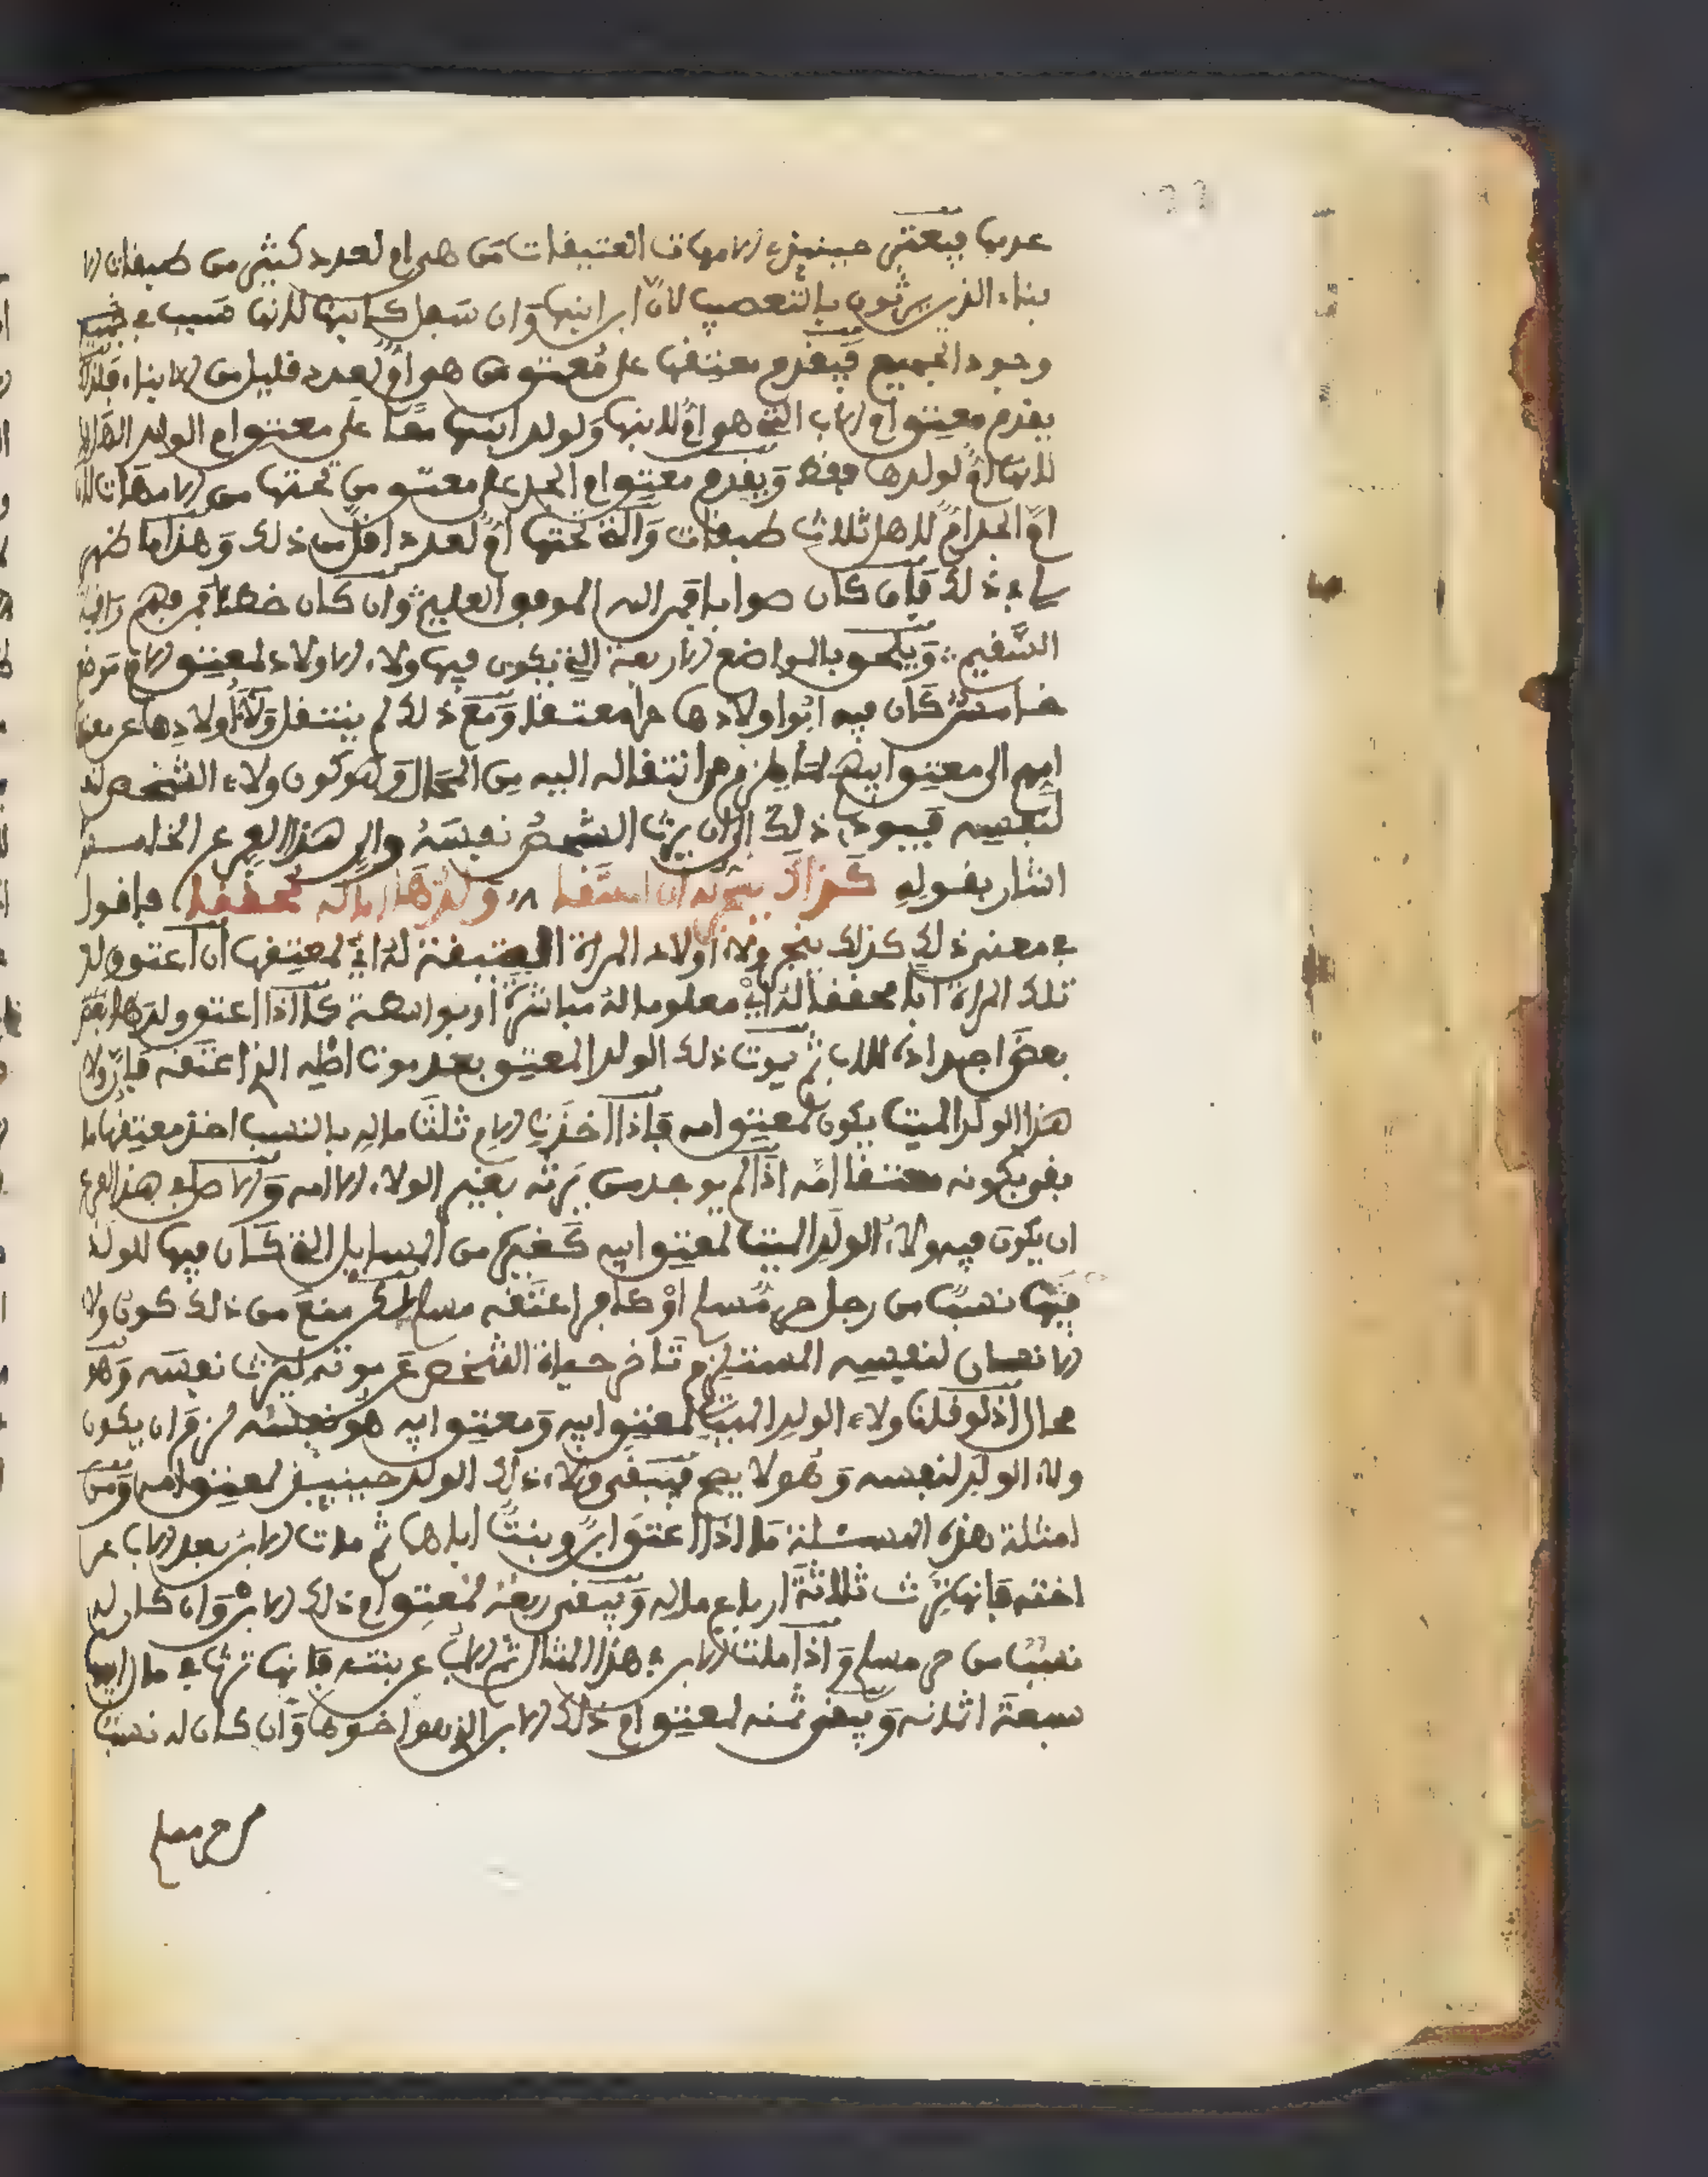 عدمها فيعتبر حينئذ في الامهات العتيقات من هي ام لعدد كثير من طبقات الا
بناء الذين يرثون بالتعصيب لان ابن ابنها وان سفل كابنها لانها سبب في
وجود الجميع فيقدم معتقها على معتق من هو ام لعدد قليل من الابناء فلذلك
يقدم معتق ام الاب التي هي ام لابنها ولولد ابنها معا على معتق ام الولد
لابنها او لولدها فقط ويقدم معتق ام الجد على معتق من تحتها من الامهات لان
ام الجد ام لاهل ثلاث طبقات والتي تحتها ام لعدد اقل من ذلك وهذا ما ظهر
لي في ذلك فان كان صوابا فمن الله الموفق العليم وان كان خطأ فمن فهمي
السقيم ويلحق بالمواضع الاربعة التي يكون فيها ولاء الاولاد لمعتق الام موضع
خامس كان فيه ابو اولادها حرا معتقا ومع ذلك لم ينتقل ولاء اولادها عن معتق
امهم الى معتق ابيهم لما يلزم من انتقاله اليه من المحال وهو كون ولاء الشخص
لنفسه فيودي ذلك الى ان يرث الشخص نفسه والى هذا الفرع الخامس
اشار بقوله كذاك ينجر له ان اعتقا ولدها ابا له محققا فاقول
في معنى ذلك كذلك ينجر ولاء اولاد المراة العتيقة له اي لمعتقها ان اعتق ولد
تلك المراة ابا محققا له اي معلوما له مباشرة او بواسطة كما اذا اعتق ولدها
بعض اجداده للاب ثم يموت ذلك الولد المعتق بعد موت اصله الذي اعتقه فان ولاء
هذا الولد الميت يكون لمعتق امه فاذا اخذت الام ثلث ماله بالنسب اخذ معتقها ما
بقي بكونه معتقا امه اذا لم يوجد من يرثه بغير الولاء الا امه والاصل في هذا الفرع
ان يكون فيه ولاء الولد الميت لمعتق ابيه كغيره من المسايل التي كان فيها للولد
فيها نسب من رجل حر مسلم او كافر اعتقه مسلم لكن منع من ذلك كون ولاء
الانسان لنفسه المستلزم تاخر حياة الشخص عن موته ليرث نفسه وهو
محال اذ لو قلنا ولاء الولد الميت لمعتق ابيه ومعتق ابيه هو نفسه لزم ان يكون
ولاء الولد لنفسه وهو لا يصح فيبقى ولاء ذلك الولد حينئذ لمعتق امه ومن
امثلة هذه المسئلة ما اذا اعتق ابن وبنت اباهما ثم مات الابن بعد الاب عن
اخته فانها ترث ثلاثة ارباع ماله ويبقى ربعه لمعتق ام ذلك الابن وان كان له
نسب من حر مسلم واذا مات الابن في هذا المثال ثم الاب عن بنته فانها ترث في مال ابيها
سبعة اثمانه ويبقى ثمنه لمعتق ام ذلك الابن الذي هو اخوها وان كان له نسب
من حر مسلم